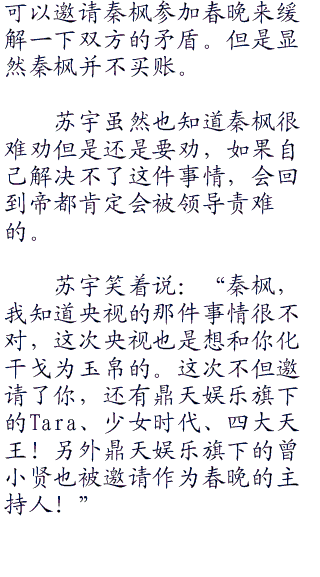 可以邀请秦枫参加春晚来缓
解一下双方的矛盾。但是显
然秦枫并不买账。
苏宇虽然也知道秦枫很
难劝但是还是要劝，如果自
己解决不了这件事情，会回
到帝都肯定会被领导责难
的。
苏宇笑着说：“秦枫，
我知道央视的那件事情很不
对，这次央视也是想和你化
干戈为玉帛的。这次不但邀
请了你，还有鼎天娱乐旗下
的Tara、少女时代、四大天
王！另外鼎天娱乐旗下的曾
小贤也被邀请作为春晚的主
持人！”